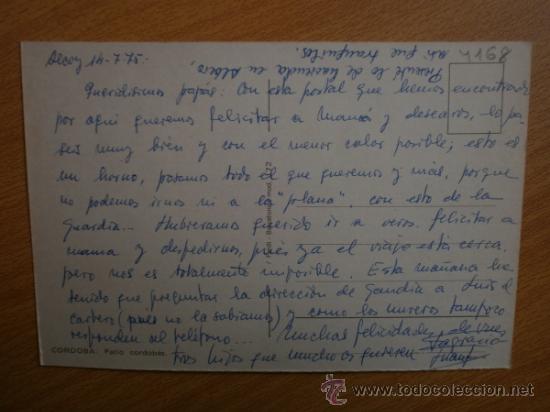 Alcoy 14-7-75.
4168
Presenté lo de hacienda en Alcoy,
así que tranquilos.
Queridísimos papás: Con esta postal que hemos encontrado
por aquí queremos felicitar a Mamá y desearos, lo pa-
seis muy bien y con el menor calor posible; esto es
un horno, pasamos todo el que queremos y más, porque
no podemos irnos ni a la "plana", con esto de la
guardia... Hubieramos querido ir a veros, felicitar a
mama y despedirnos, pues ya el viaje está cerca,
pero nos es totalmente imposible. Esta mañana he
tenido que preguntar la dirección de Gandia a Luis el
cartero (pues no la sabíamos) y como los nuestros tampoco
responden al teléfono...
Muchas felicidades, de unos
tres hijos que mucho os quieren
CORDOBA: Patio cordobés.
todocoleccion.net